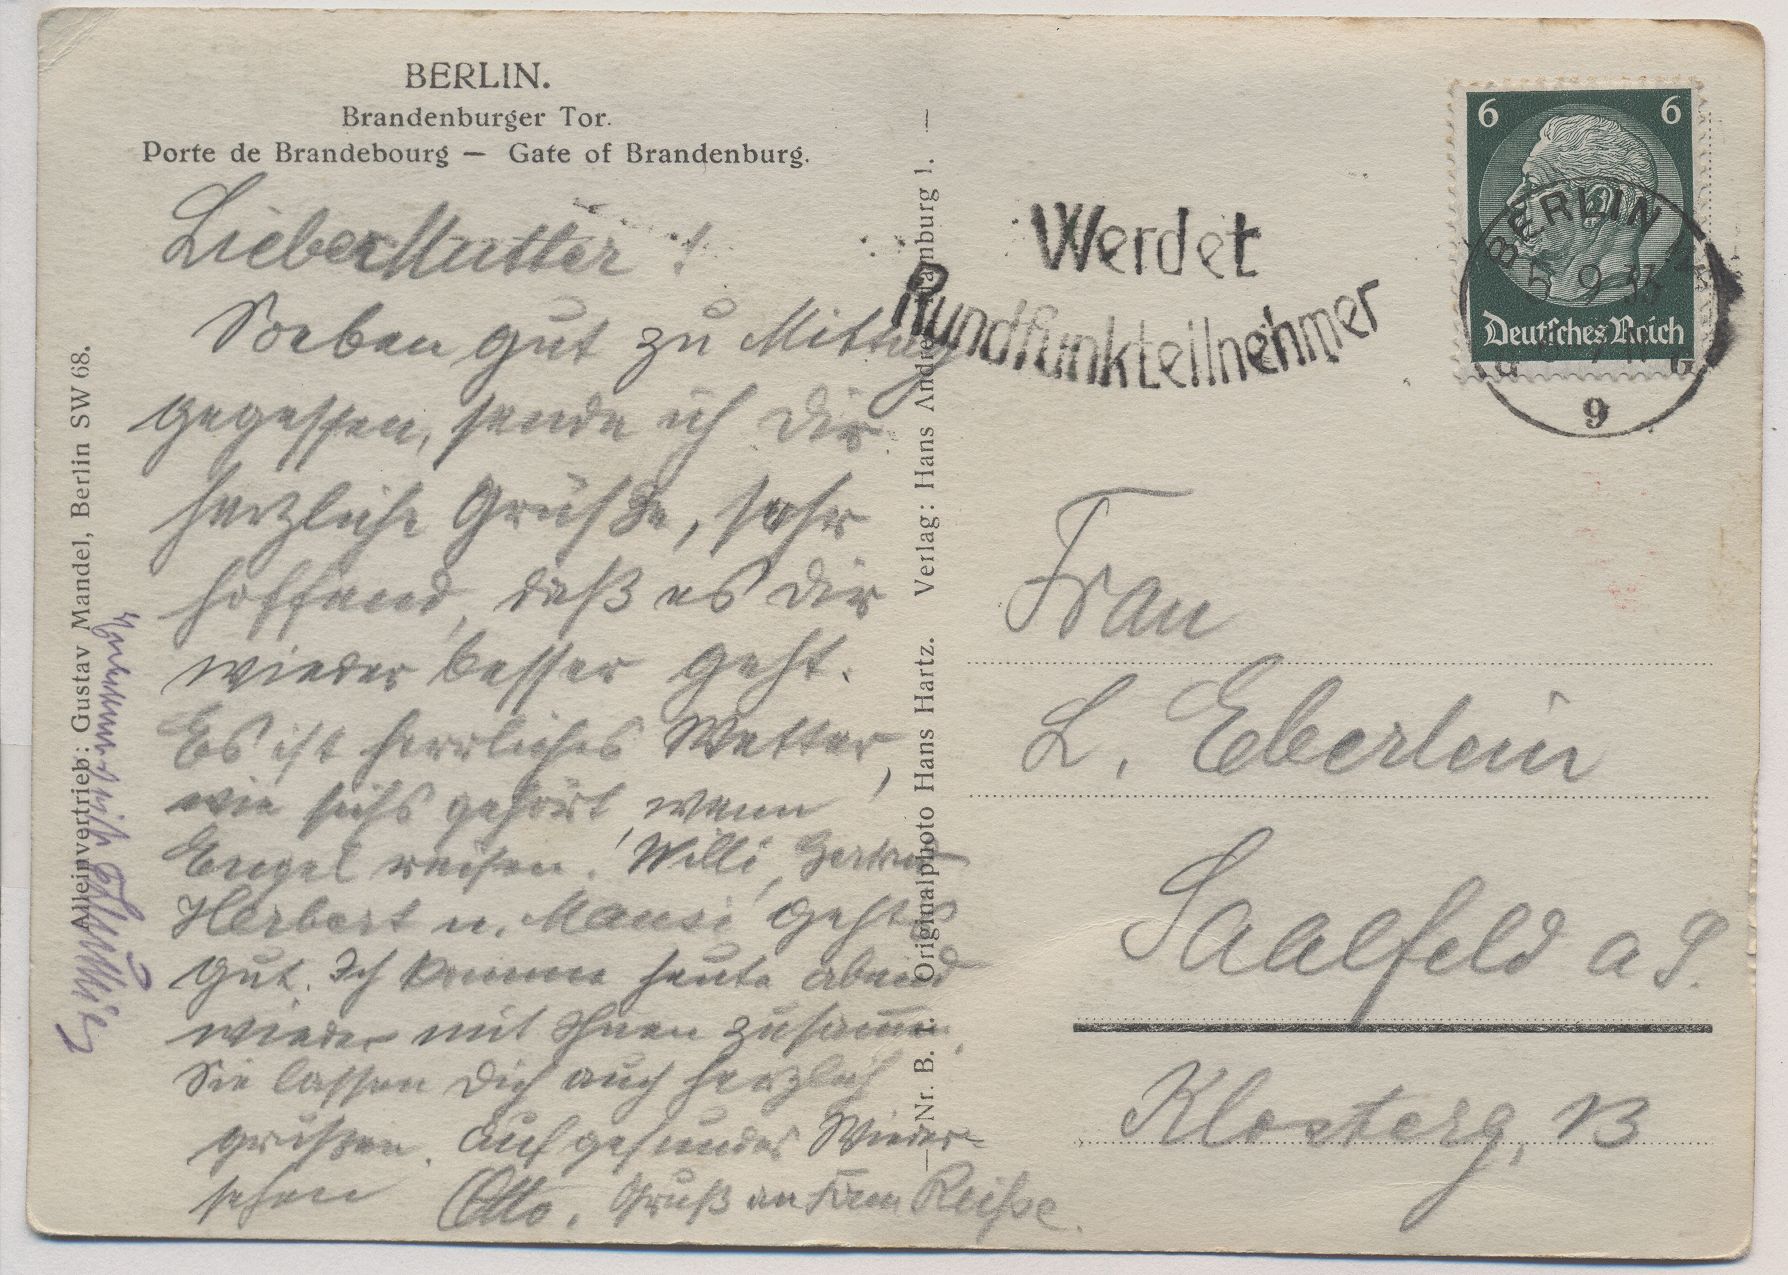 BERLIN.
Brandenburger Tor.
Porte de Brandebourg — Gate of Brandenburg.
Liebe Mutter!
Soeben gut zu Mittag
gegessen, sende ich Dir
herzliche Grüße, sehr
hoffend, daß es Dir
wieder besser geht.
Es ist herrliches Wetter,
wie sichs gehört, wenn
Engel reisen. Willi, Gertrud
Herbert u. Mausi gehts
gut. Ich komme heute abend
wieder mit Ihnen zusammen,
Sie lassen Dich auch herzlich
grüßen. Auf gesundes Wieder-
sehen Otto. Gruß an Fam Reiße.
Alleinvertrieb: Gustav Mandel, Berlin SW 68.
Nr. B. 1. Originalphoto Hans Hartz. Verlag: Hans Andres, Hamburg 1.
Werdet
Rundfunkteilnehmer
6 6
Deutsches Reich
BERLIN
5 9 33
9
Frau
L. Eberlein
Saalfeld a S.
Klosterg, 13